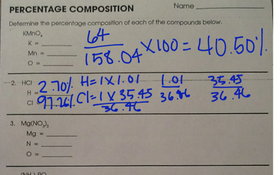 PERCENTAGE COMPOSITION Name
Determine the percentage composition of each of the compounds below.
KMnO₄
K =
Mn =
O =
64
158.04 × 100 = 40.50%
2. HCl
H = 2.70% H = 1 × 1.01 1.01 35.45
Cl 97.26% Cl = 1 × 35.45 36.46 36.46
36.46
3. Mg(NO₃)₂
Mg =
N =
O =